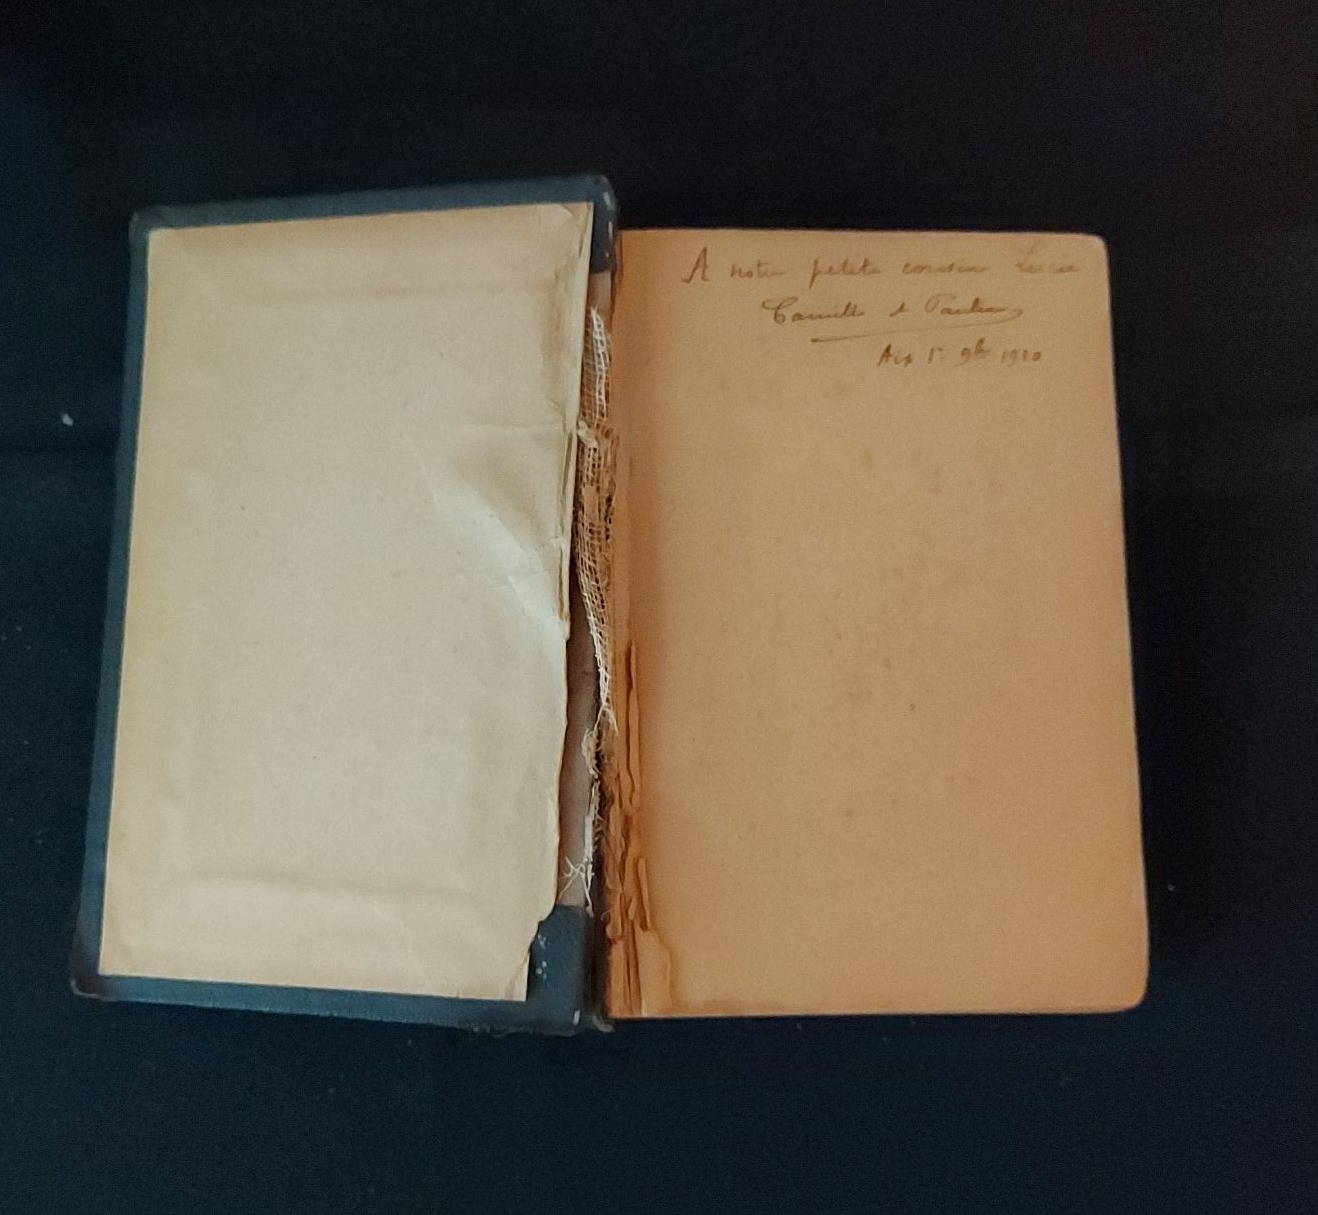 A notre petite cousine Lucie
Camille et
Aix 1er 9bre 1910